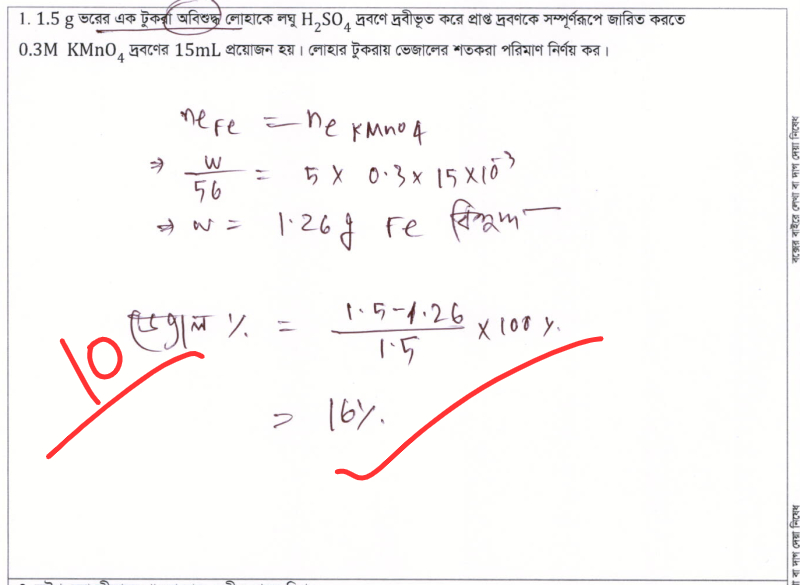 1. 1.5 g ভরের এক টুকরা অবিশুদ্ধ লোহাকে লঘু H₂SO₄ দ্রবণে দ্রবীভূত করে প্রাপ্ত দ্রবণকে সম্পূর্ণরূপে জারিত করতে
0.3M KMnO₄ দ্রবণের 15mL প্রয়োজন হয়। লোহার টুকরায় ভেজালের শতকরা পরিমাণ নির্ণয় কর।
ne Fe = ne KMnO4
⇒ w/56 = 5 × 0.3 × 15 × 10⁻³
⇒ w = 1.26 g Fe
ভেজাল % = (1.5-1.26)/1.5 × 100 %.
= 16%.
10
বক্সের বাইরে লেখা বা দাগ দেয়া নিষেধ
বা দাগ দেয়া নিষেধ